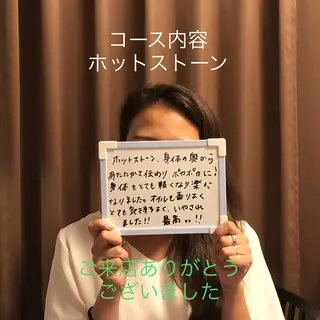 コース内容
ホットストーン
ホットストーン、身体の奥から
あたたかさ伝わり、ポカポカに!
身体もとても軽くなり楽に
なりました。オイルも香りよく
とても気持ちよく、いやされ
ました!! 最高!!
ご来店ありがとう
ございました